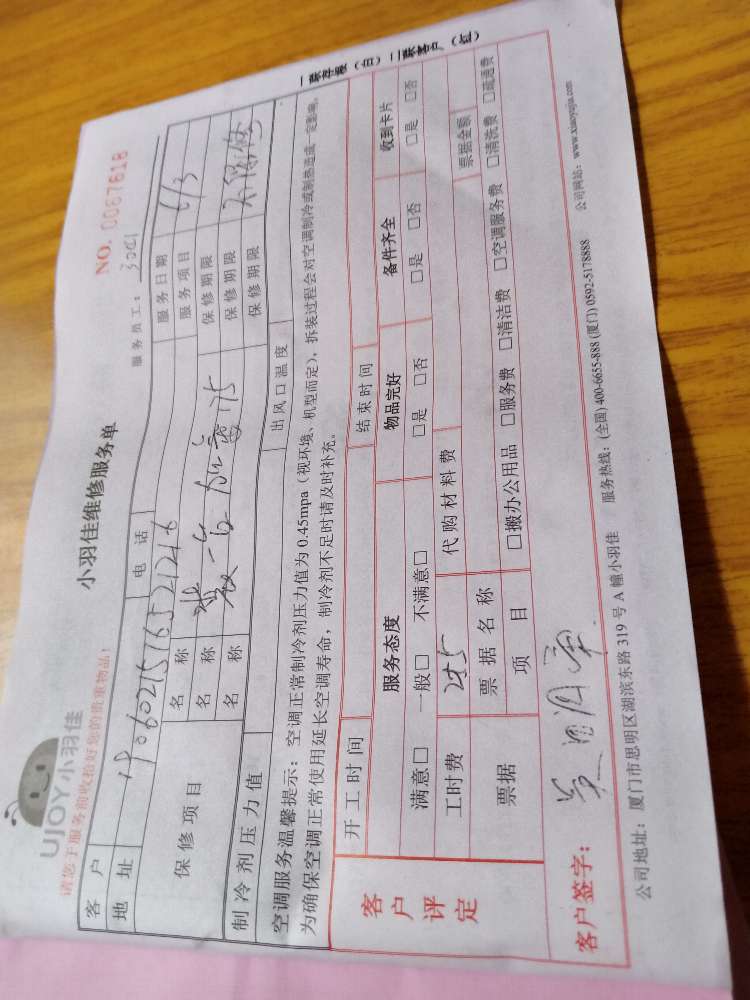 UJOY小羽佳
小羽佳维修服务单
NO. 0067618
请您于服务前收拾好您的贵重物品！
服务员工：
客户 电话 服务日期 6/3
地址 服务项目
保修项目 名称 保修期限
名称 保修期限
名称 保修期限
制冷剂压力值 出风口温度
空调服务温馨提示：空调正常制冷剂压力值为 0.45mpa（视环境、机型而定），拆装过程会对空调制冷或制热造成一定影响，
为确保空调正常使用延长空调寿命，制冷剂不足时请及时补充。
一联存根（白） 二联客户（红）
客户评定
开工时间 结束时间
服务态度 物品完好 备件齐全 收到卡片
满意□ 一般□ 不满意□ □是 □否 □是 □否 □是 □否
工时费 245 代购材料费
票据 票据名称 票据金额
项目 □搬办公用品 □服务费 □清洁费 □空调服务费 □清洗费 □疏通费
客户签字：
公司地址：厦门市思明区湖滨东路 319 号 A 幢小羽佳 服务热线：(全国) 400-6655-888 (厦门) 0592-5178888 公司网站：www.xiaoyujia.com